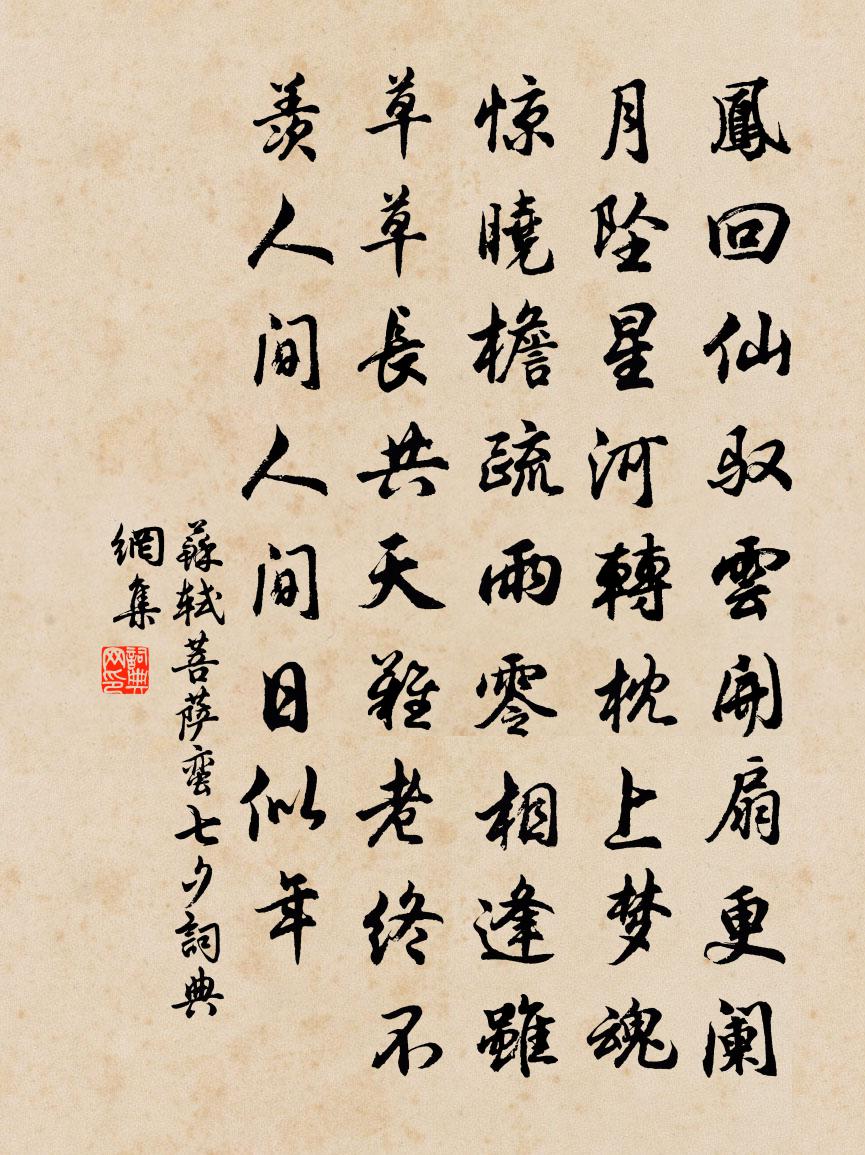 鳳回仙馭雲開扇更阑
月坠星河轉枕上梦魂
惊曉檐疏雨零相逢雖
草草長共天難老终不
羨人间人间日似年
蘇軾菩萨蛮七夕詞典
網集
詞典网印